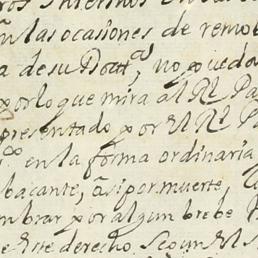 en las ocasiones de remo
a de su Doctª, no pueda
por lo que mira al Rl Pa
presentado por el Rl P
en la forma ordinaria
bacante, asi por muerte,
mbrar por algun brebe
e este derecho segun el